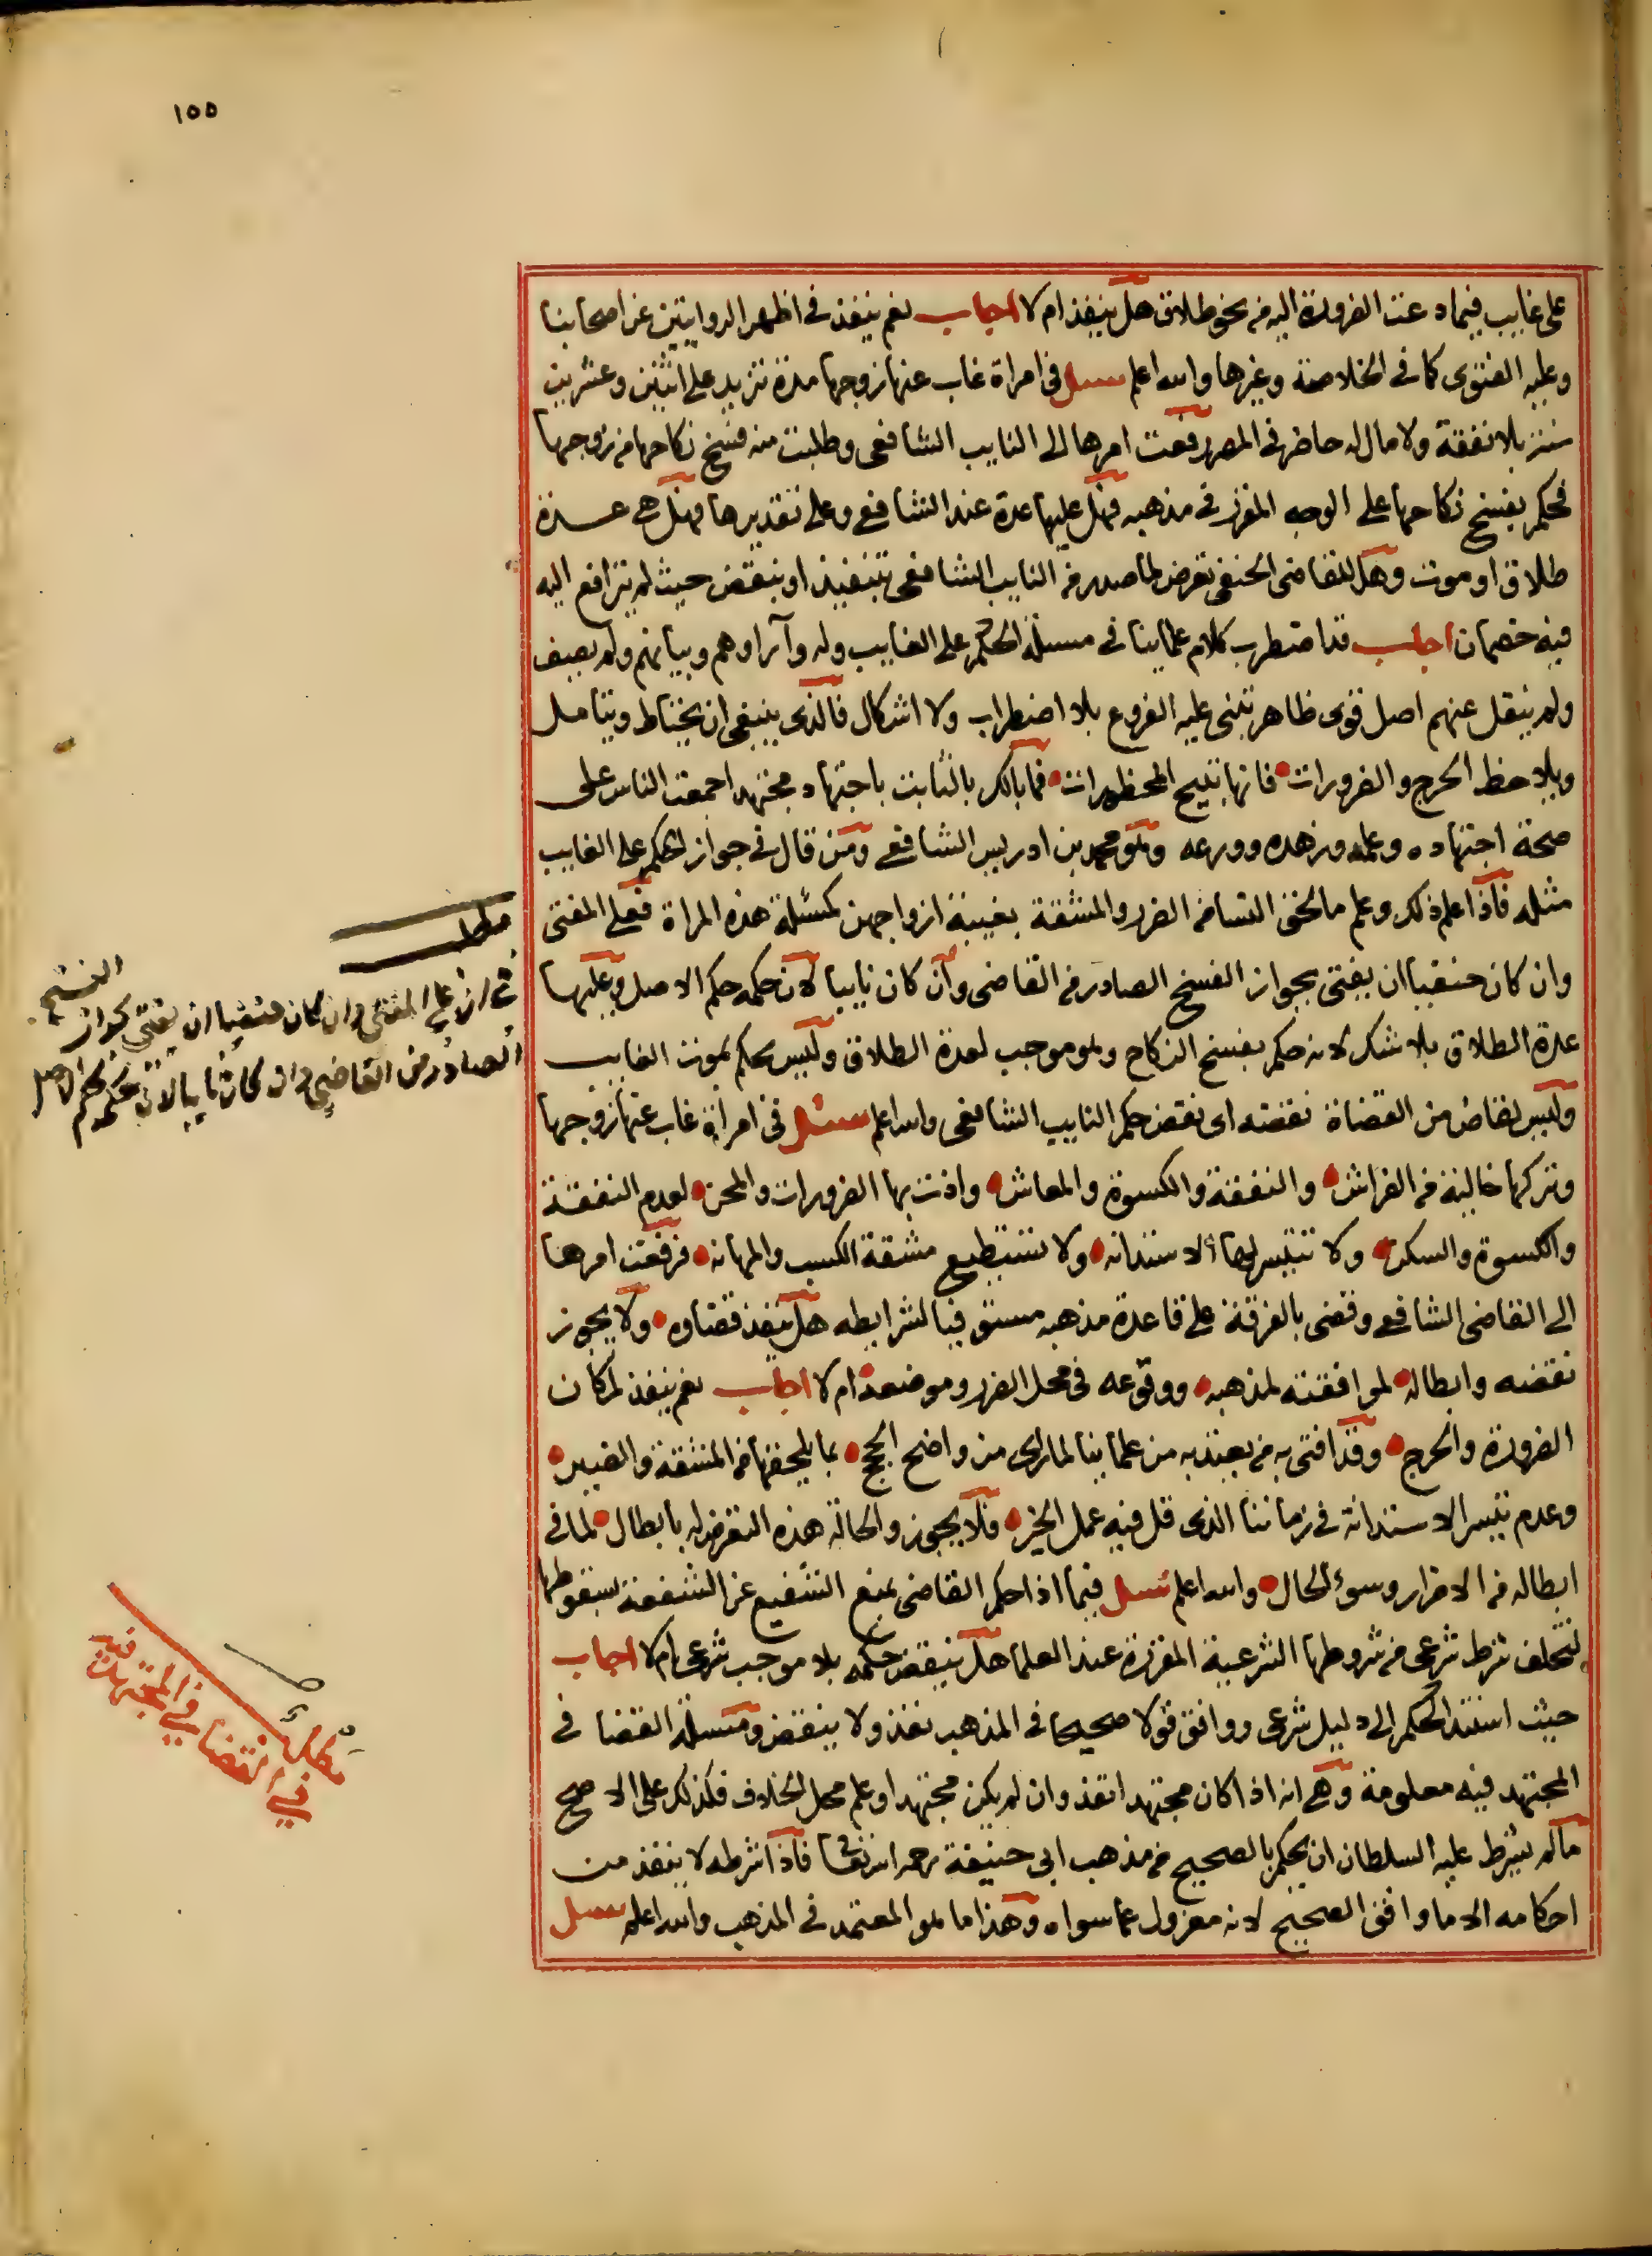 ١٥٥
على غايب فيما دعت الضرورة اليه من نحو طلاق هل ينفذ ام لا اجاب نعم ينفذ في اظهر الروايتين عن اصحابنا
وعليه الفتوى كما في الخلاصة وغيرها والله اعلم سئل في امراة غاب عنها زوجها مدة تزيد على اثنتين وعشرين
سنة بلا نفقة ولا مال له حاضر في المصر رفعت امرها الى النايب الشافعي وطلبت منه فسخ نكاحها من زوجها
فحكم بفسخ نكاحها على الوجه المقرر في مذهبه فهل عليها عدة عند الشافعي وعلى تقديرها فهل هي عدة
طلاق او موت وهل للقاضي الحنفي تعرض لما صدر من النايب الشافعي بتنفيذ او بنقض حيث لم يترافع اليه
فيه خصمان اجاب قد اضطرب كلام علماينا في مسئلة الحكم على الغايب وله وآراوهم وبيانهم ولم يصف
ولم ينقل عنهم اصل قوي ظاهر تبنى عليه الفروع بلا اضطراب ولا اشكال فالذي ينبغي ان يحتاط ويتامل
ويلاحظ الحرج والضرورات فانها تبيح المحظورات فما بالك بالثابت باجتهاد مجتهد اجمعت الناس على
صحة اجتهاده وعلمه وزهده وورعه وهو محمد بن ادريس الشافعي ومن قال في جواز الحكم على الغايب
مثله فاذا علم ذلك وعلم ما لحق النسا من الضرر والمشقة بغيبة ازواجهن كمسئلة هذه المراة فعلى المفتي
وان كان حنفيا ان يفتي بجواز الفسخ الصادر من القاضي وان كان نايبا لان حكمه حكم الاصل وعليها
عدة الطلاق بلا شك لانه حكم بفسخ النكاح وهو موجب لعدة الطلاق وليس بحكم بموت الغايب
وليس لقاض من القضاة نقضه اى نقض حكم النايب الشافعي والله اعلم سئل في امراة غاب عنها زوجها
وتركها خالية من الفراش والنفقة والكسوة والمعاش واذت بها الضرورات والمحن لعدم النفقة
والكسوة والسكن ولا تتيسر لها الاستدانه ولا تستطيع مشقة الكسب والمهانه فرفعت امرها
الى القاضي الشافعي وقضى بالفرقة على قاعدة مذهبه مستوفيا لشرايطه هل ينفذ قضاوه ولا يجوز
نقضه وابطاله لموافقته لمذهبه ووقوعه في محل الضرر وموضعه ام لا اجاب نعم ينفذ لمكان
الضرورة والحرج وقد افتى به من يعتد به من علماينا لما راى من واضح الحجج بما يلحقها من المشقة والضير
وعدم تيسر الاستدانة في زماننا الذي قل فيه عمل الخير فلا يجوز والحالة هذه التعرض له بابطال لما في
ابطاله من الاضرار وسوء الحال والله اعلم سئل فيما اذا حكم القاضي بمنع الشفيع عن الشفعة لسقوطها
لتخلف شرط شرعي من شروطها الشرعية المقررة عند العلما هل ينقض حكمه بلا موجب شرعي ام لا اجاب
حيث استند الحكم الى دليل شرعي ووافق قولا صحيحا في المذهب نفذ ولا ينقض ومسئلة القضا في
المجتهد فيه معلومة وهي انه اذا كان مجتهدا نفذ وان لم يكن مجتهدا وعلم محل الخلاف فكذلك على الاصح
ما لم يشرط عليه السلطان ان يحكم بالصحيح من مذهب ابي حنيفة رحمه الله تعالى فاذا شرطه لا ينفذ من
احكامه الا ما وافق الصحيح لانه معزول عما سواه وهذا ما هو المعتمد في المذهب والله اعلم سئل
مطلب
في ان على المفتي وان كان حنفيا ان يفتي بجواز الفسخ
الصادر من القاضي وان كان نايبا لان حكمه كحكم الاصل
مطلب
في القضا في المجتهد فيه